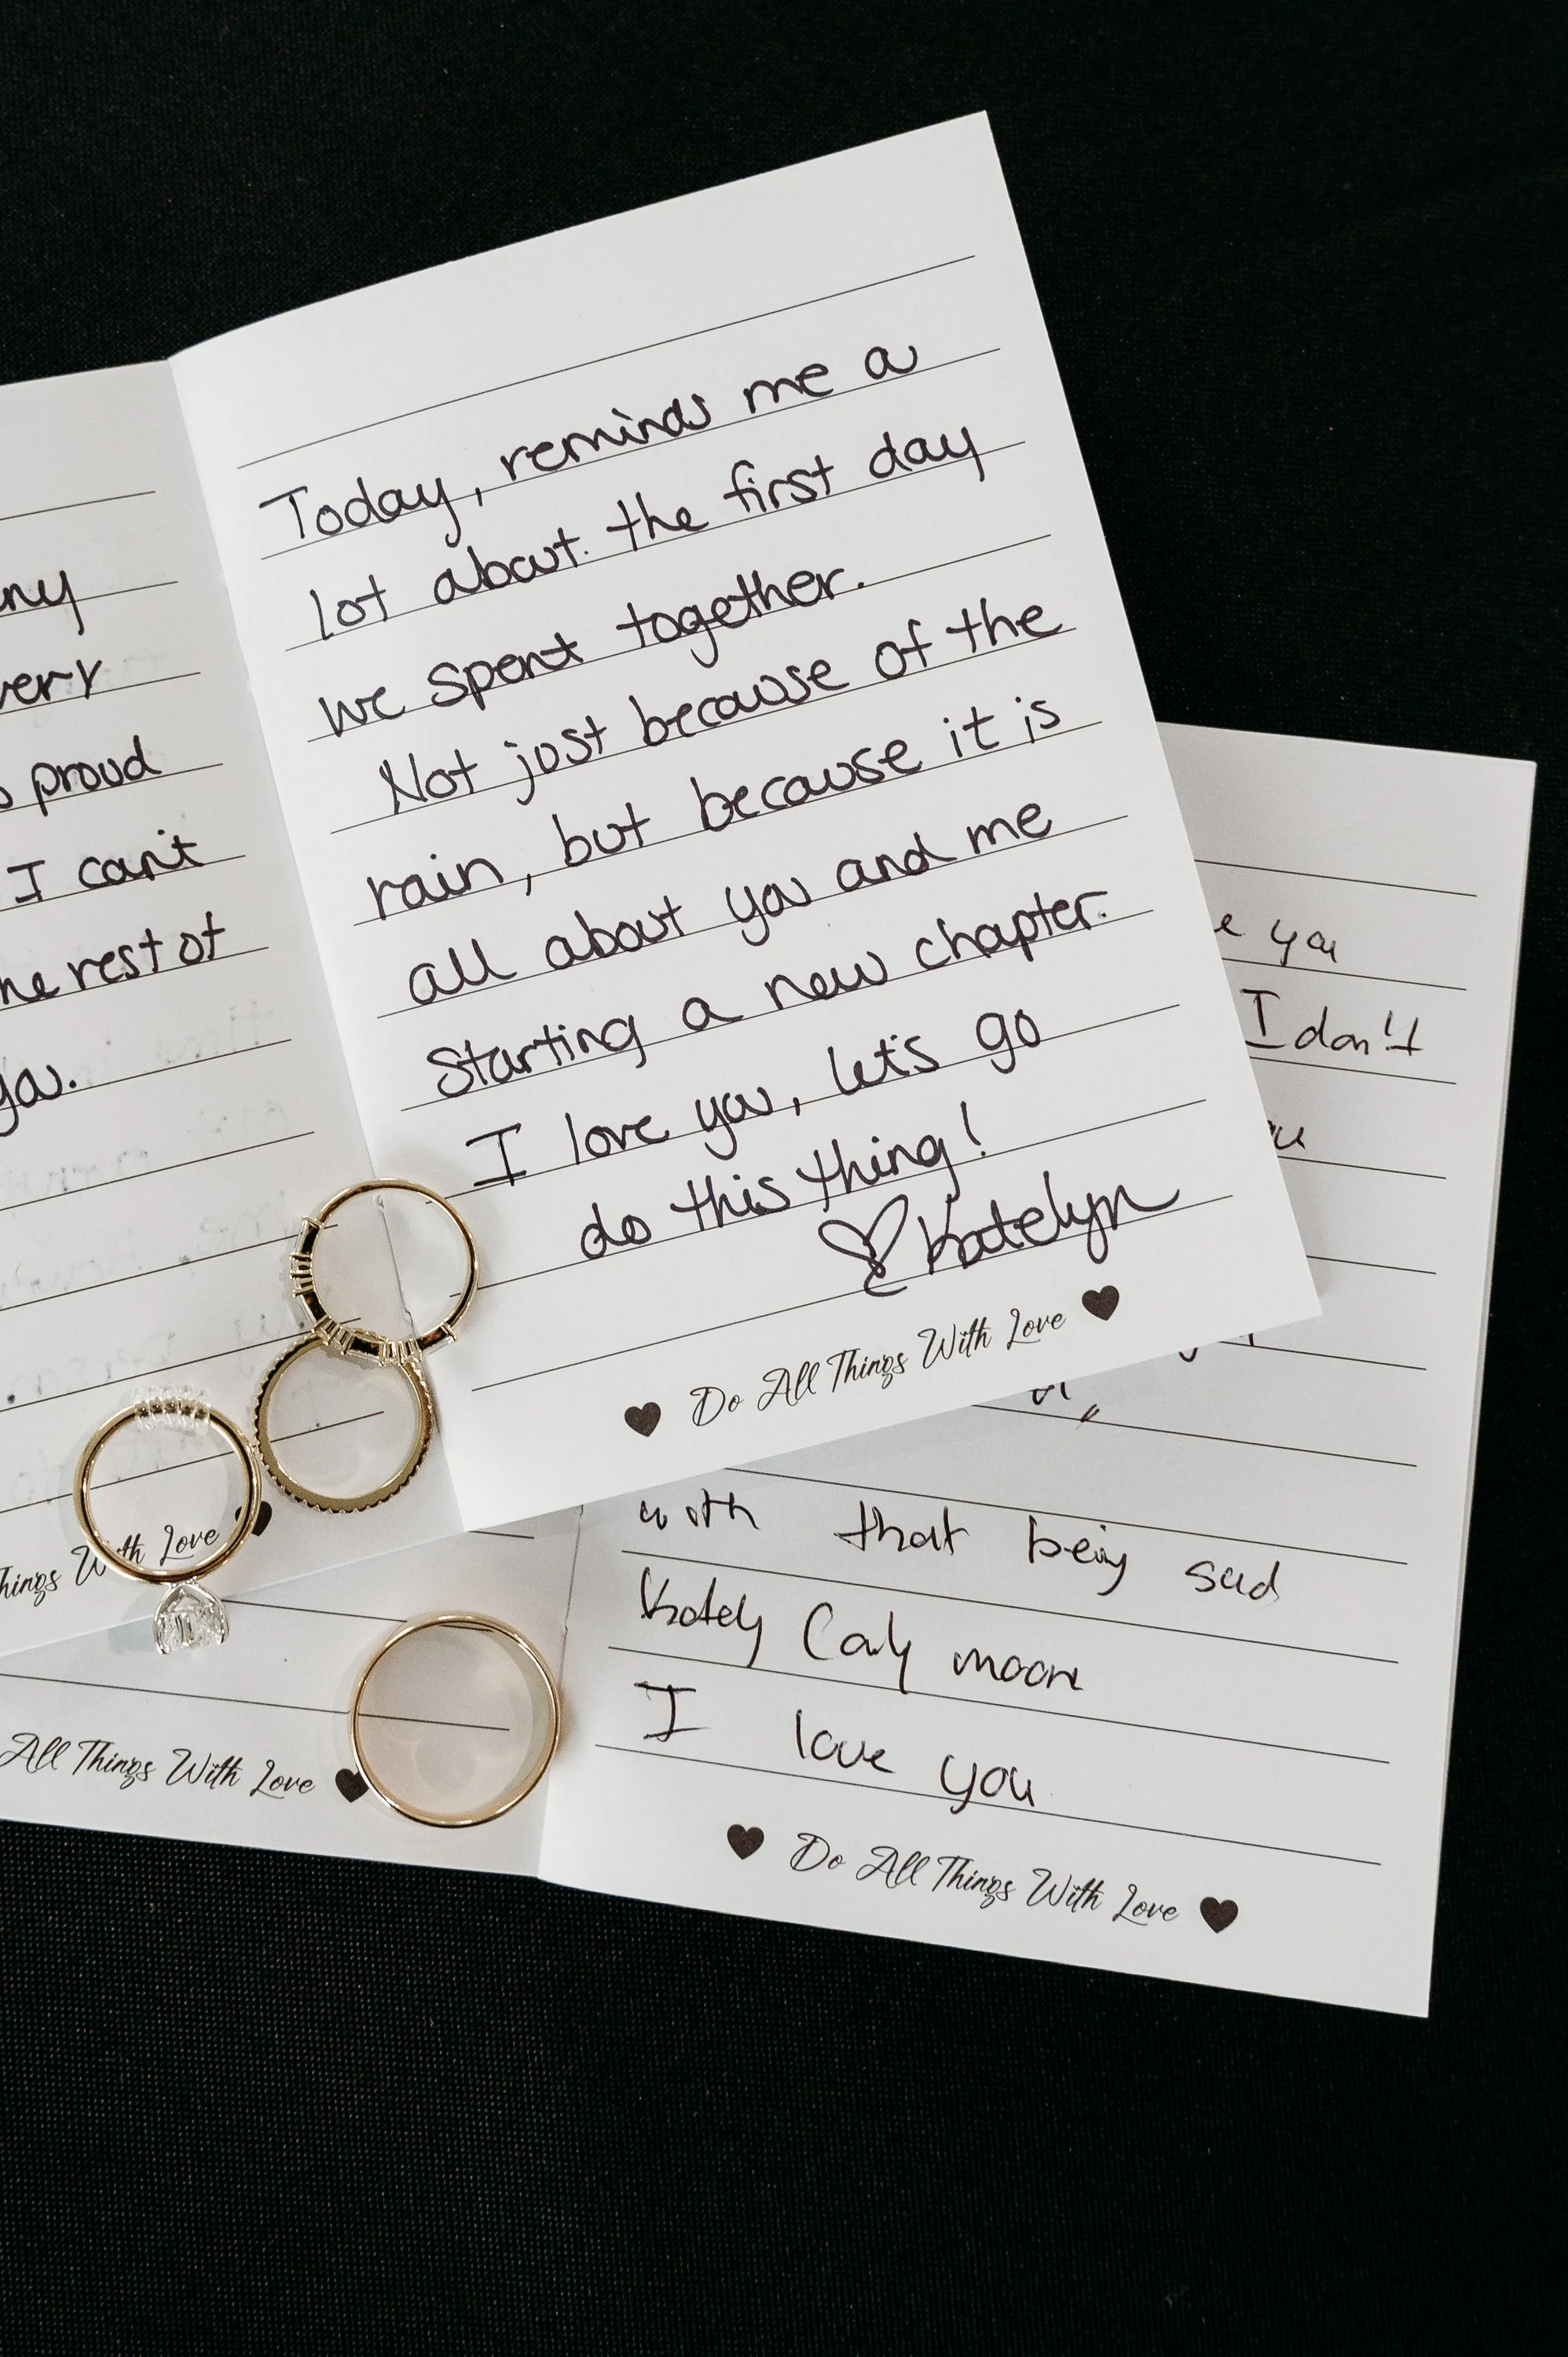 ny
very
proud
I can't
he rest of
you.
Things With Love
Today, reminds me a
lot about the first day
we spent together.
Not just because of the
rain, but because it is
all about you and me
starting a new chapter.
I love you, let's go
do this thing!
Katelyn
Do All Things With Love
e you
I don't
All Things With Love
with that being said
Kately Carly moore
I love you
Do All Things With Love